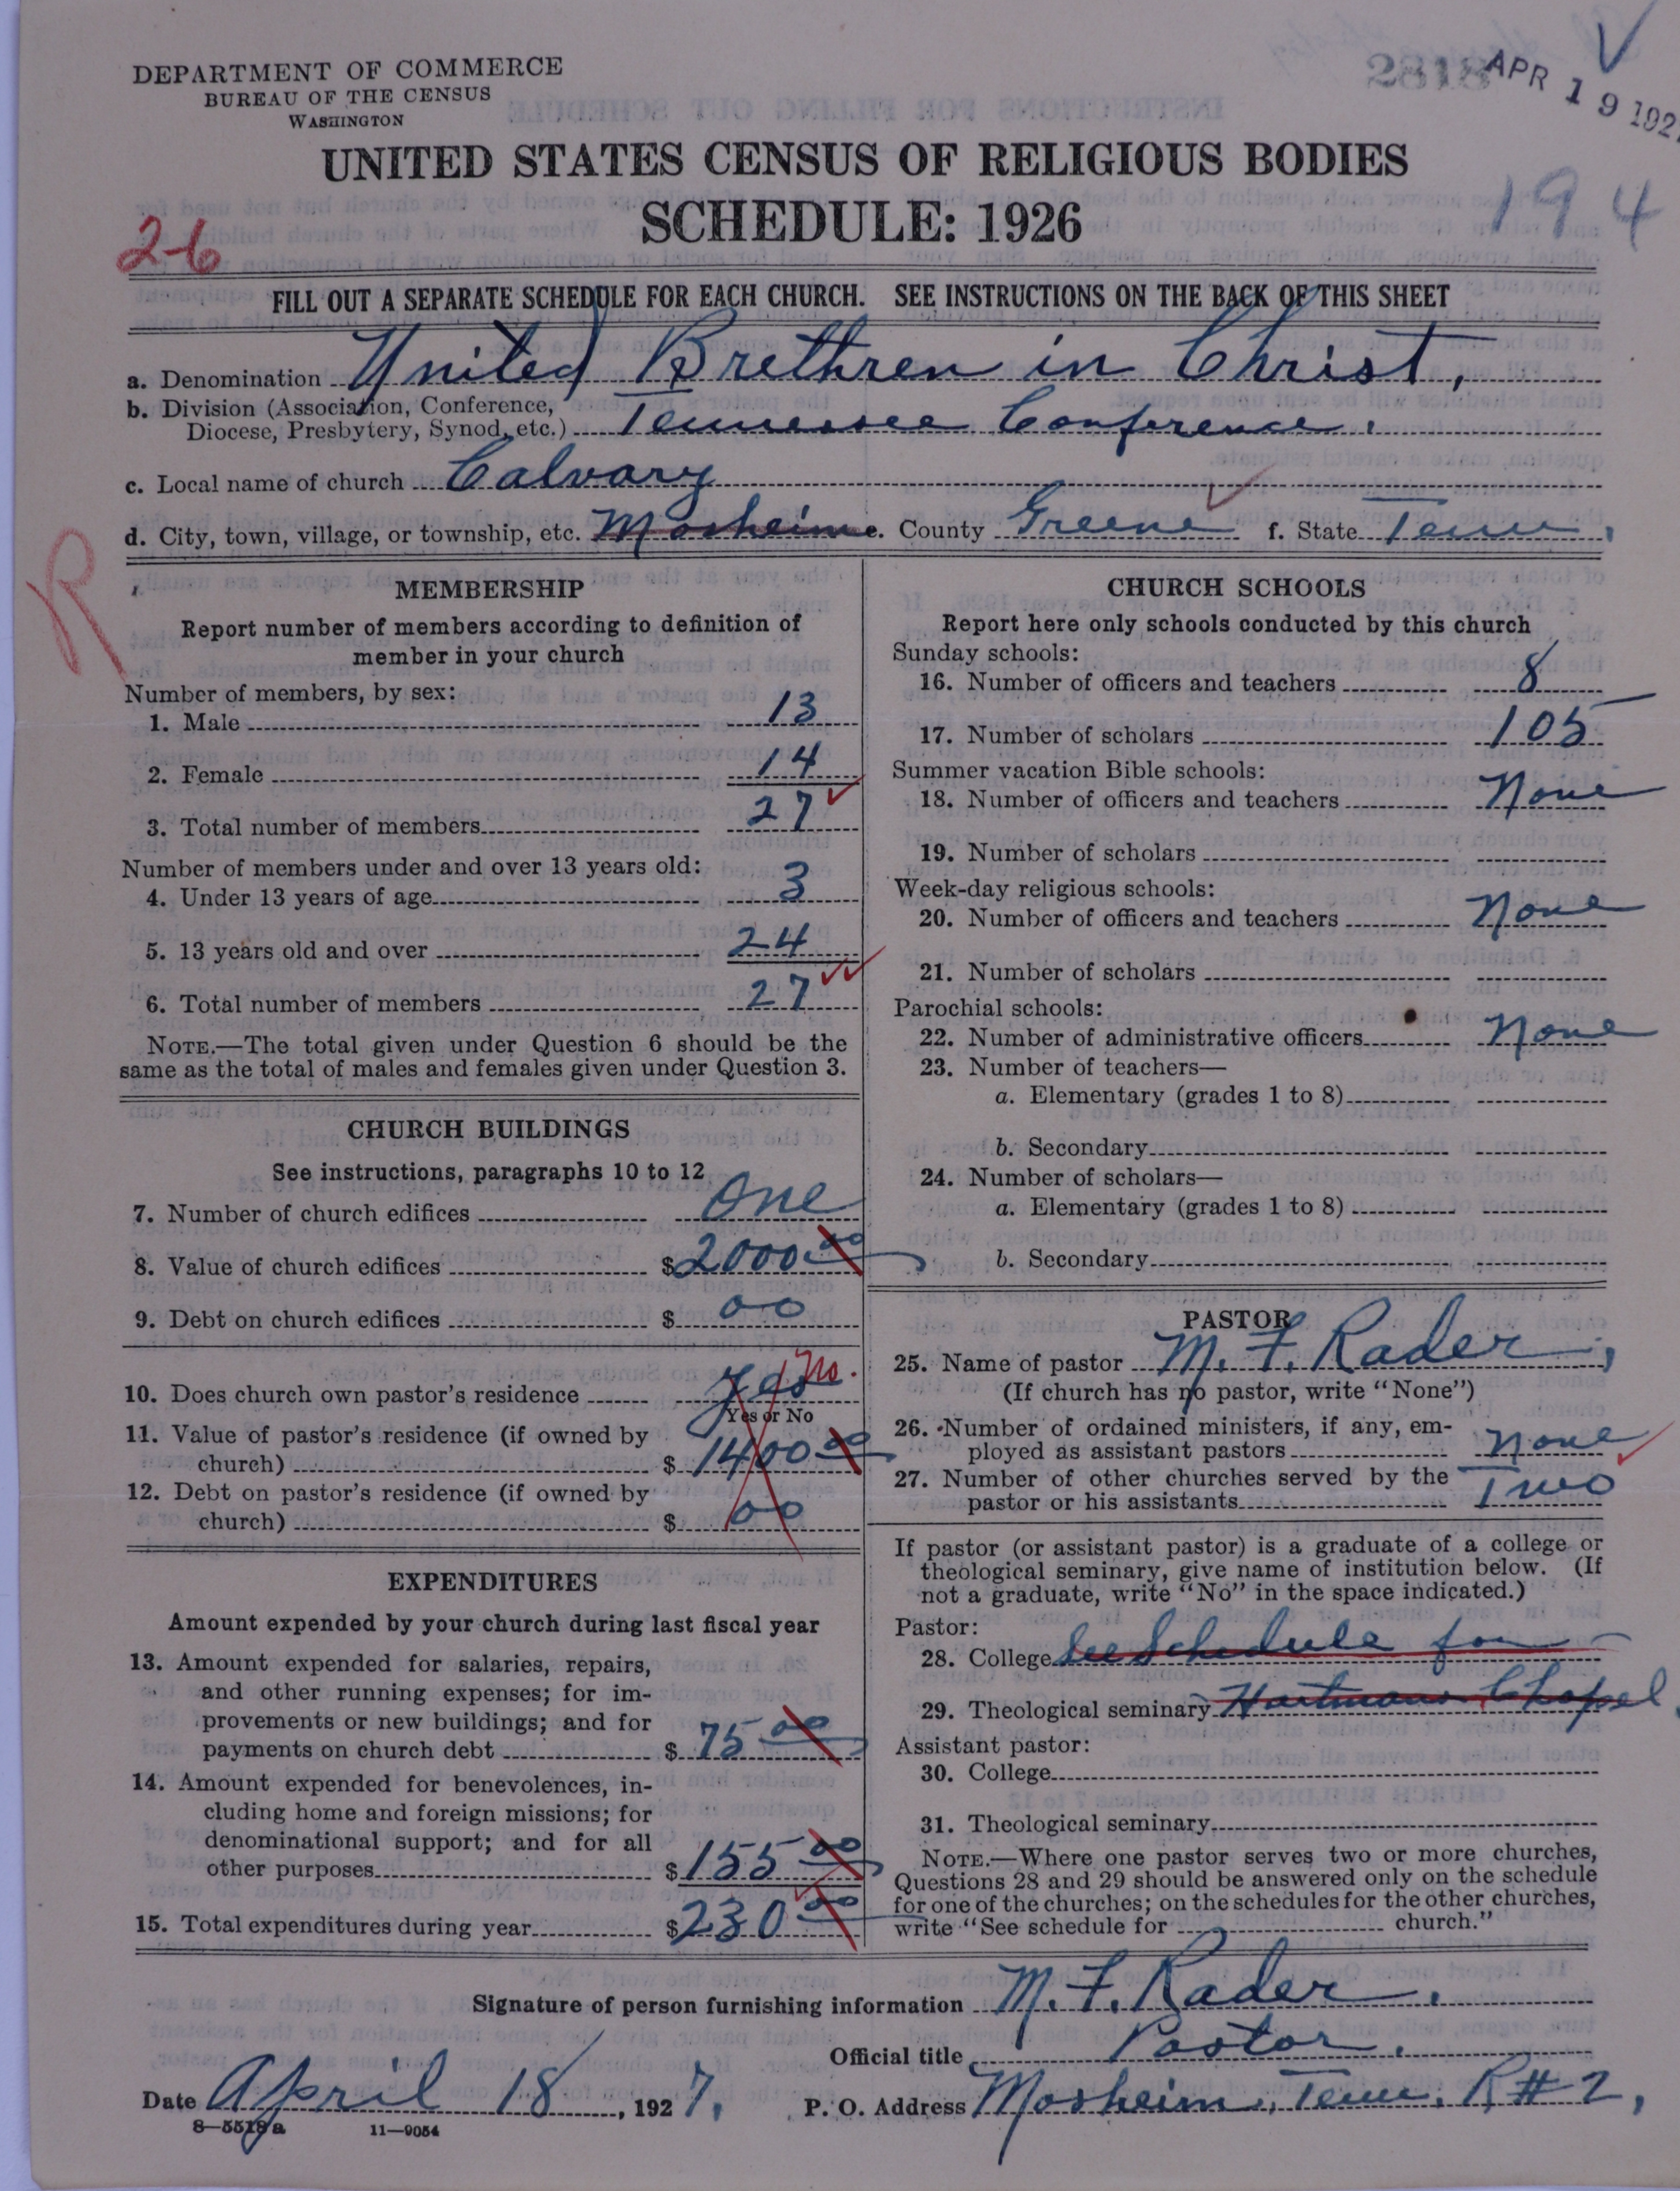 DEPARTMENT OF COMMERCE
BUREAU OF THE CENSUS
WASHINGTON
2818
APR 19 192
UNITED STATES CENSUS OF RELIGIOUS BODIES
SCHEDULE: 1926
194
26
FILL OUT A SEPARATE SCHEDULE FOR EACH CHURCH. SEE INSTRUCTIONS ON THE BACK OF THIS SHEET
a. Denomination United Brethren in Christ,
b. Division (Association, Conference,
Diocese, Presbytery, Synod, etc.) Tennessee Conference.
c. Local name of church Calvary
d. City, town, village, or township, etc. Mosheim e. County Greene f. State Tenn,
R
MEMBERSHIP
Report number of members according to definition of
member in your church
Number of members, by sex:
1. Male 13
2. Female 14
3. Total number of members 27
Number of members under and over 13 years old:
4. Under 13 years of age 3
5. 13 years old and over 24
6. Total number of members 27
NOTE.—The total given under Question 6 should be the
same as the total of males and females given under Question 3.
CHURCH BUILDINGS
See instructions, paragraphs 10 to 12
7. Number of church edifices One
8. Value of church edifices $2000.00
9. Debt on church edifices $ 00
10. Does church own pastor's residence Yes No.
Yes or No
11. Value of pastor's residence (if owned by
church) $ 1400.00
12. Debt on pastor's residence (if owned by
church) $ 00
EXPENDITURES
Amount expended by your church during last fiscal year
13. Amount expended for salaries, repairs,
and other running expenses; for im-
provements or new buildings; and for
payments on church debt $ 75.00
14. Amount expended for benevolences, in-
cluding home and foreign missions; for
denominational support; and for all
other purposes $155.00
15. Total expenditures during year $230.00
CHURCH SCHOOLS
Report here only schools conducted by this church
Sunday schools:
16. Number of officers and teachers 8
17. Number of scholars 105
Summer vacation Bible schools:
18. Number of officers and teachers None
19. Number of scholars
Week-day religious schools:
20. Number of officers and teachers None
21. Number of scholars
Parochial schools:
22. Number of administrative officers None
23. Number of teachers—
a. Elementary (grades 1 to 8)
b. Secondary
24. Number of scholars—
a. Elementary (grades 1 to 8)
b. Secondary
PASTOR
25. Name of pastor M. F. Rader,
(If church has no pastor, write "None")
26. Number of ordained ministers, if any, em-
ployed as assistant pastors None
27. Number of other churches served by the
pastor or his assistants Two
If pastor (or assistant pastor) is a graduate of a college or
theological seminary, give name of institution below. (If
not a graduate, write "No" in the space indicated.)
Pastor:
28. College See Schedule for
29. Theological seminary Hartmans Chapel
Assistant pastor:
30. College
31. Theological seminary
NOTE.—Where one pastor serves two or more churches,
Questions 28 and 29 should be answered only on the schedule
for one of the churches; on the schedules for the other churches,
write "See schedule for church."
Signature of person furnishing information M. F. Rader.
Official title Pastor.
Date April 18, 1927.
P. O. Address Mosheim, Tenn. R#2,
8—5518a 11—9054